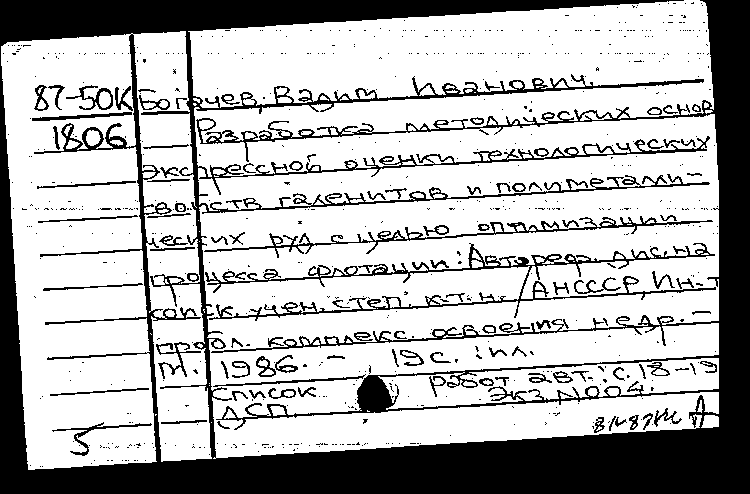 87-50К Богачев, Вадим Иванович.
1806 Разработка методических основ
экспрессной оценки технологических
свойств галенитов и полиметалли-
ческих руд с целью оптимизации
процесса флотации: Автореф. дис. на
соиск. учен. степ. к.т.н. / АН СССР, Ин-т
пробл. комплекс. освоения недр. -
М. 1986. - 19 с. : ил.
Список работ авт.: с. 18-19
ДСП. Экз. N 004.
5 А